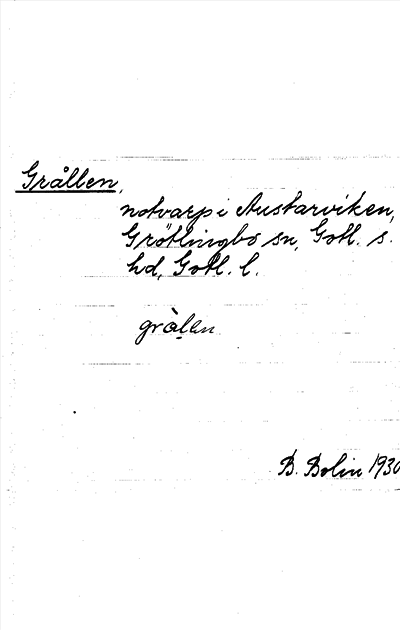 Grållen,
notvarp i Austarviken,
Grötlingbo sn, Gotl. s.
hd, Gotl. l.
gràḷen
B. Bolin 1930